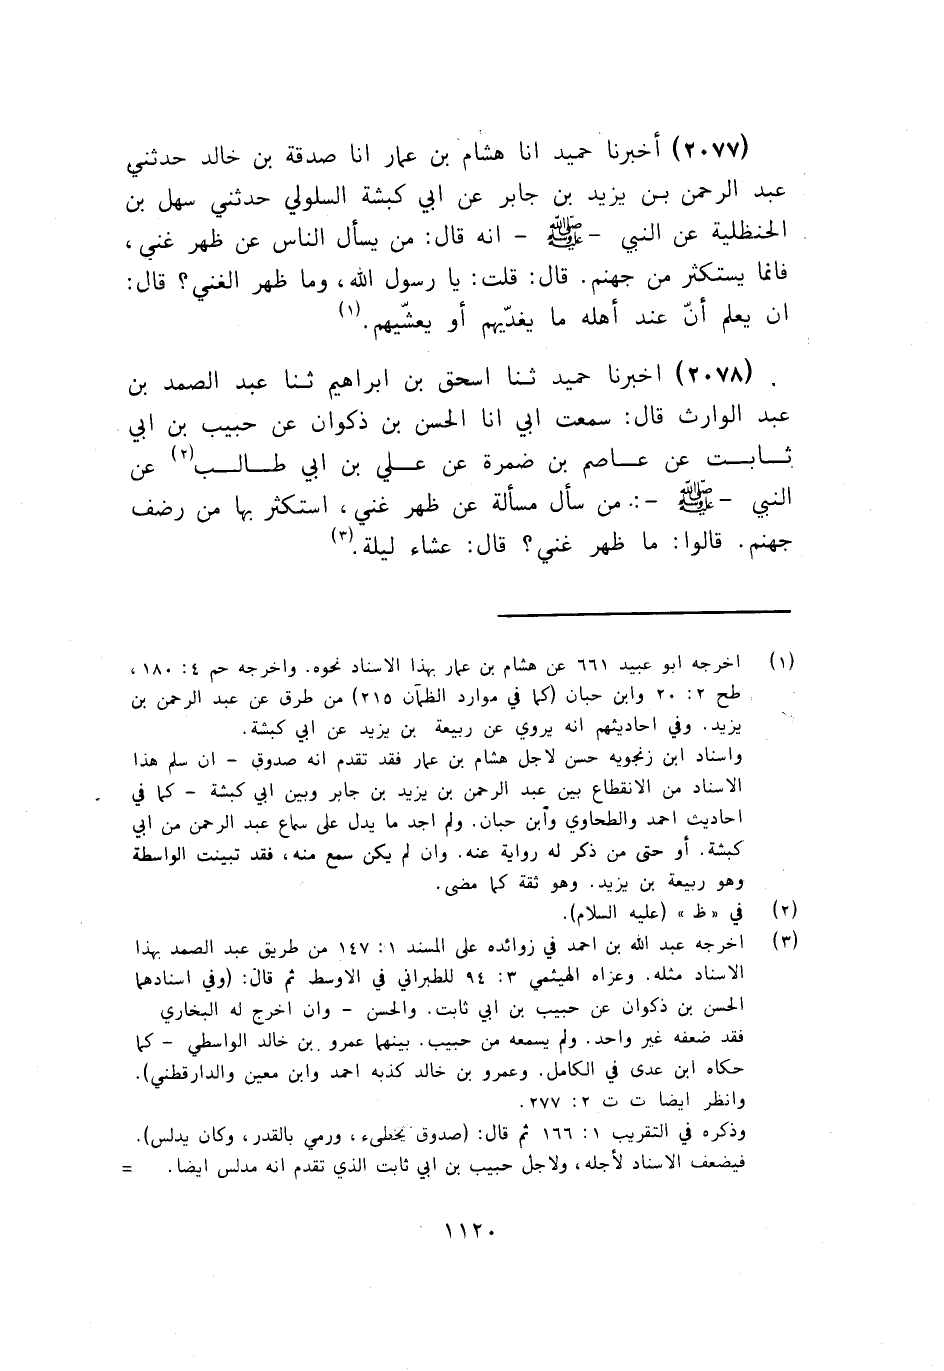 (٢٠٧٧) أخبرنا حميد انا هشام بن عمار انا صدقة بن خالد حدثني
عبد الرحمن بن يزيد بن جابر عن ابي كبشة السلولي حدثني سهل بن
الحنظلية عن النبي - ﷺ - انه قال: من يسأل الناس عن ظهر غني،
فانما يستكثر من جهنم. قال: قلت: يا رسول الله، وما ظهر الغني؟ قال:
ان يعلم أنّ عند أهله ما يغدّيهم أو يعشّيهم.(١)
(٢٠٧٨) اخبرنا حميد ثنا اسحق بن ابراهيم ثنا عبد الصمد بن
عبد الوارث قال: سمعت ابي انا الحسن بن ذكوان عن حبيب بن ابي
ثابت عن عاصم بن ضمرة عن علي بن ابي طالب(٢) عن
النبي - ﷺ -: من سأل مسألة عن ظهر غني، استكثر بها من رضف
جهنم. قالوا: ما ظهر غني؟ قال: عشاء ليلة.(٣)
(١) اخرجه ابو عبيد ٦٦١ عن هشام بن عمار بهذا الاسناد نحوه. واخرجه حم ٤: ١٨٠،
طح ٢: ٢٠ وابن حبان (كما في موارد الظمآن ٢١٥) من طرق عن عبد الرحمن بن
يزيد. وفي احاديثهم انه يروي عن ربيعة بن يزيد عن ابي كبشة.
واسناد ابن زنجويه حسن لاجل هشام بن عمار فقد تقدم انه صدوق - ان سلم هذا
الاسناد من الانقطاع بين عبد الرحمن بن يزيد بن جابر وبين ابي كبشة - كما في
احاديث احمد والطحاوي وأبن حبان. ولم اجد ما يدل على سماع عبد الرحمن من ابي
كبشة. أو حتى من ذكر له رواية عنه. وان لم يكن سمع منه، فقد تبينت الواسطة
وهو ربيعة بن يزيد. وهو ثقة كما مضى.
(٢) في «ظ» (عليه السلام).
(٣) اخرجه عبد الله بن احمد في زوائده على المسند ١: ١٤٧ من طريق عبد الصمد بهذا
الاسناد مثله. وعزاه الهيثمي ٣: ٩٤ للطبراني في الاوسط ثم قال: (وفي اسنادهما
الحسن بن ذكوان عن حبيب بن ابي ثابت. والحسن - وان اخرج له البخاري
فقد ضعفه غير واحد. ولم يسمعه من حبيب. بينهما عمرو بن خالد الواسطي - كما
حكاه ابن عدى في الكامل. وعمرو بن خالد كذبه احمد وابن معين والدارقطني).
وانظر ايضا ت ت ٢: ٢٧٧.
وذكره في التقريب ١: ١٦٦ ثم قال: (صدوق يخطىء، ورمي بالقدر، وكان يدلس).
فيضعف الاسناد لأجله، ولاجل حبيب بن ابي ثابت الذي تقدم انه مدلس ايضا. =
١١٢٠